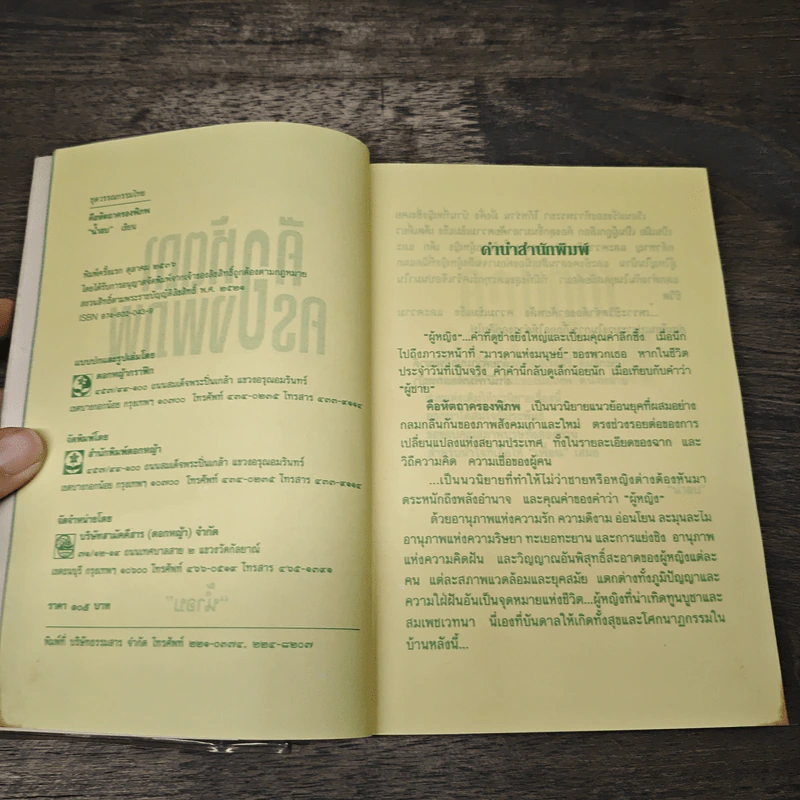 ชุดวรรณกรรมไทย
คือหัตถาครองพิภพ
"น้ำอบ" เขียน
พิมพ์ครั้งแรก ตุลาคม ๒๕๓๖
โดยได้รับการอนุญาตจัดพิมพ์จากเจ้าของลิขสิทธิ์ถูกต้องตามกฎหมาย
สงวนสิทธิ์ตามพระราชบัญญัติลิขสิทธิ์ พ.ศ. ๒๕๒๑
ISBN 974-602-043-9
แบบปกและรูปเล่มโดย
ดอกหญ้ากราฟิก
๔๕๗/๔๔-๑๐๐ ถนนสมเด็จพระปิ่นเกล้า แขวงอรุณอมรินทร์
เขตบางกอกน้อย กรุงเทพฯ ๑๐๗๐๐ โทรศัพท์ ๔๓๔-๐๒๓๕ โทรสาร ๔๓๓-๔๑๑๔
จัดพิมพ์โดย
สำนักพิมพ์ดอกหญ้า
๔๕๗/๔๔-๑๐๐ ถนนสมเด็จพระปิ่นเกล้า แขวงอรุณอมรินทร์
เขตบางกอกน้อย กรุงเทพฯ ๑๐๗๐๐ โทรศัพท์ ๔๓๔-๐๒๓๕ โทรสาร ๔๓๓-๔๑๑๔
จัดจำหน่ายโดย
บริษัทสามัคคีสาร (ดอกหญ้า) จำกัด
๓๑/๑๒-๑๔ ถนนเทศบาลสาย ๒ แขวงวัดกัลยาณ์
เขตธนบุรี กรุงเทพฯ ๑๐๖๐๐ โทรศัพท์ ๔๖๖-๐๕๑๙ โทรสาร ๔๖๕-๑๓๙๑
ราคา ๑๐๕ บาท
พิมพ์ที่ บริษัทธรรมสาร จำกัด โทรศัพท์ 221-0374, 224-8207
คำนำสำนักพิมพ์
"ผู้หญิง"...คำที่ดูช่างยิ่งใหญ่และเปี่ยมคุณค่าลึกซึ้ง เมื่อนึก
ไปถึงภาระหน้าที่ "มารดาแห่งมนุษย์" ของพวกเธอ หากในชีวิต
ประจำวันที่เป็นจริง คำคำนี้กลับดูเล็กน้อยนัก เมื่อเทียบกับคำว่า
"ผู้ชาย"
คือหัตถาครองพิภพ เป็นนวนิยายแนวย้อนยุคที่ผสมอย่าง
กลมกลืนกันของภาพสังคมเก่าและใหม่ ตรงช่วงรอยต่อของการ
เปลี่ยนแปลงแห่งสยามประเทศ ทั้งในรายละเอียดของฉาก และ
วิถีความคิด ความเชื่อของผู้คน
...เป็นนวนิยายที่ทำให้ไม่ว่าชายหรือหญิงต่างต้องหันมา
ตระหนักถึงพลังอำนาจ และคุณค่าของคำว่า "ผู้หญิง"
ด้วยอานุภาพแห่งความรัก ความดีงาม อ่อนโยน ละมุนละไม
อานุภาพแห่งความริษยา ทะเยอทะยาน และการแย่งชิง อานุภาพ
แห่งความคิดฝัน และวิญญาณอันพิสุทธิ์สะอาดของผู้หญิงแต่ละ
คน แต่ละสภาพแวดล้อมและยุคสมัย แตกต่างทั้งภูมิปัญญาและ
ความใฝ่ฝันอันเป็นจุดหมายแห่งชีวิต...ผู้หญิงที่น่าเทิดทูนบูชาและ
สมเพชเวทนา นี่เองที่บันดาลให้เกิดทั้งสุขและโศกนาฏกรรมใน
บ้านหลังนี้...